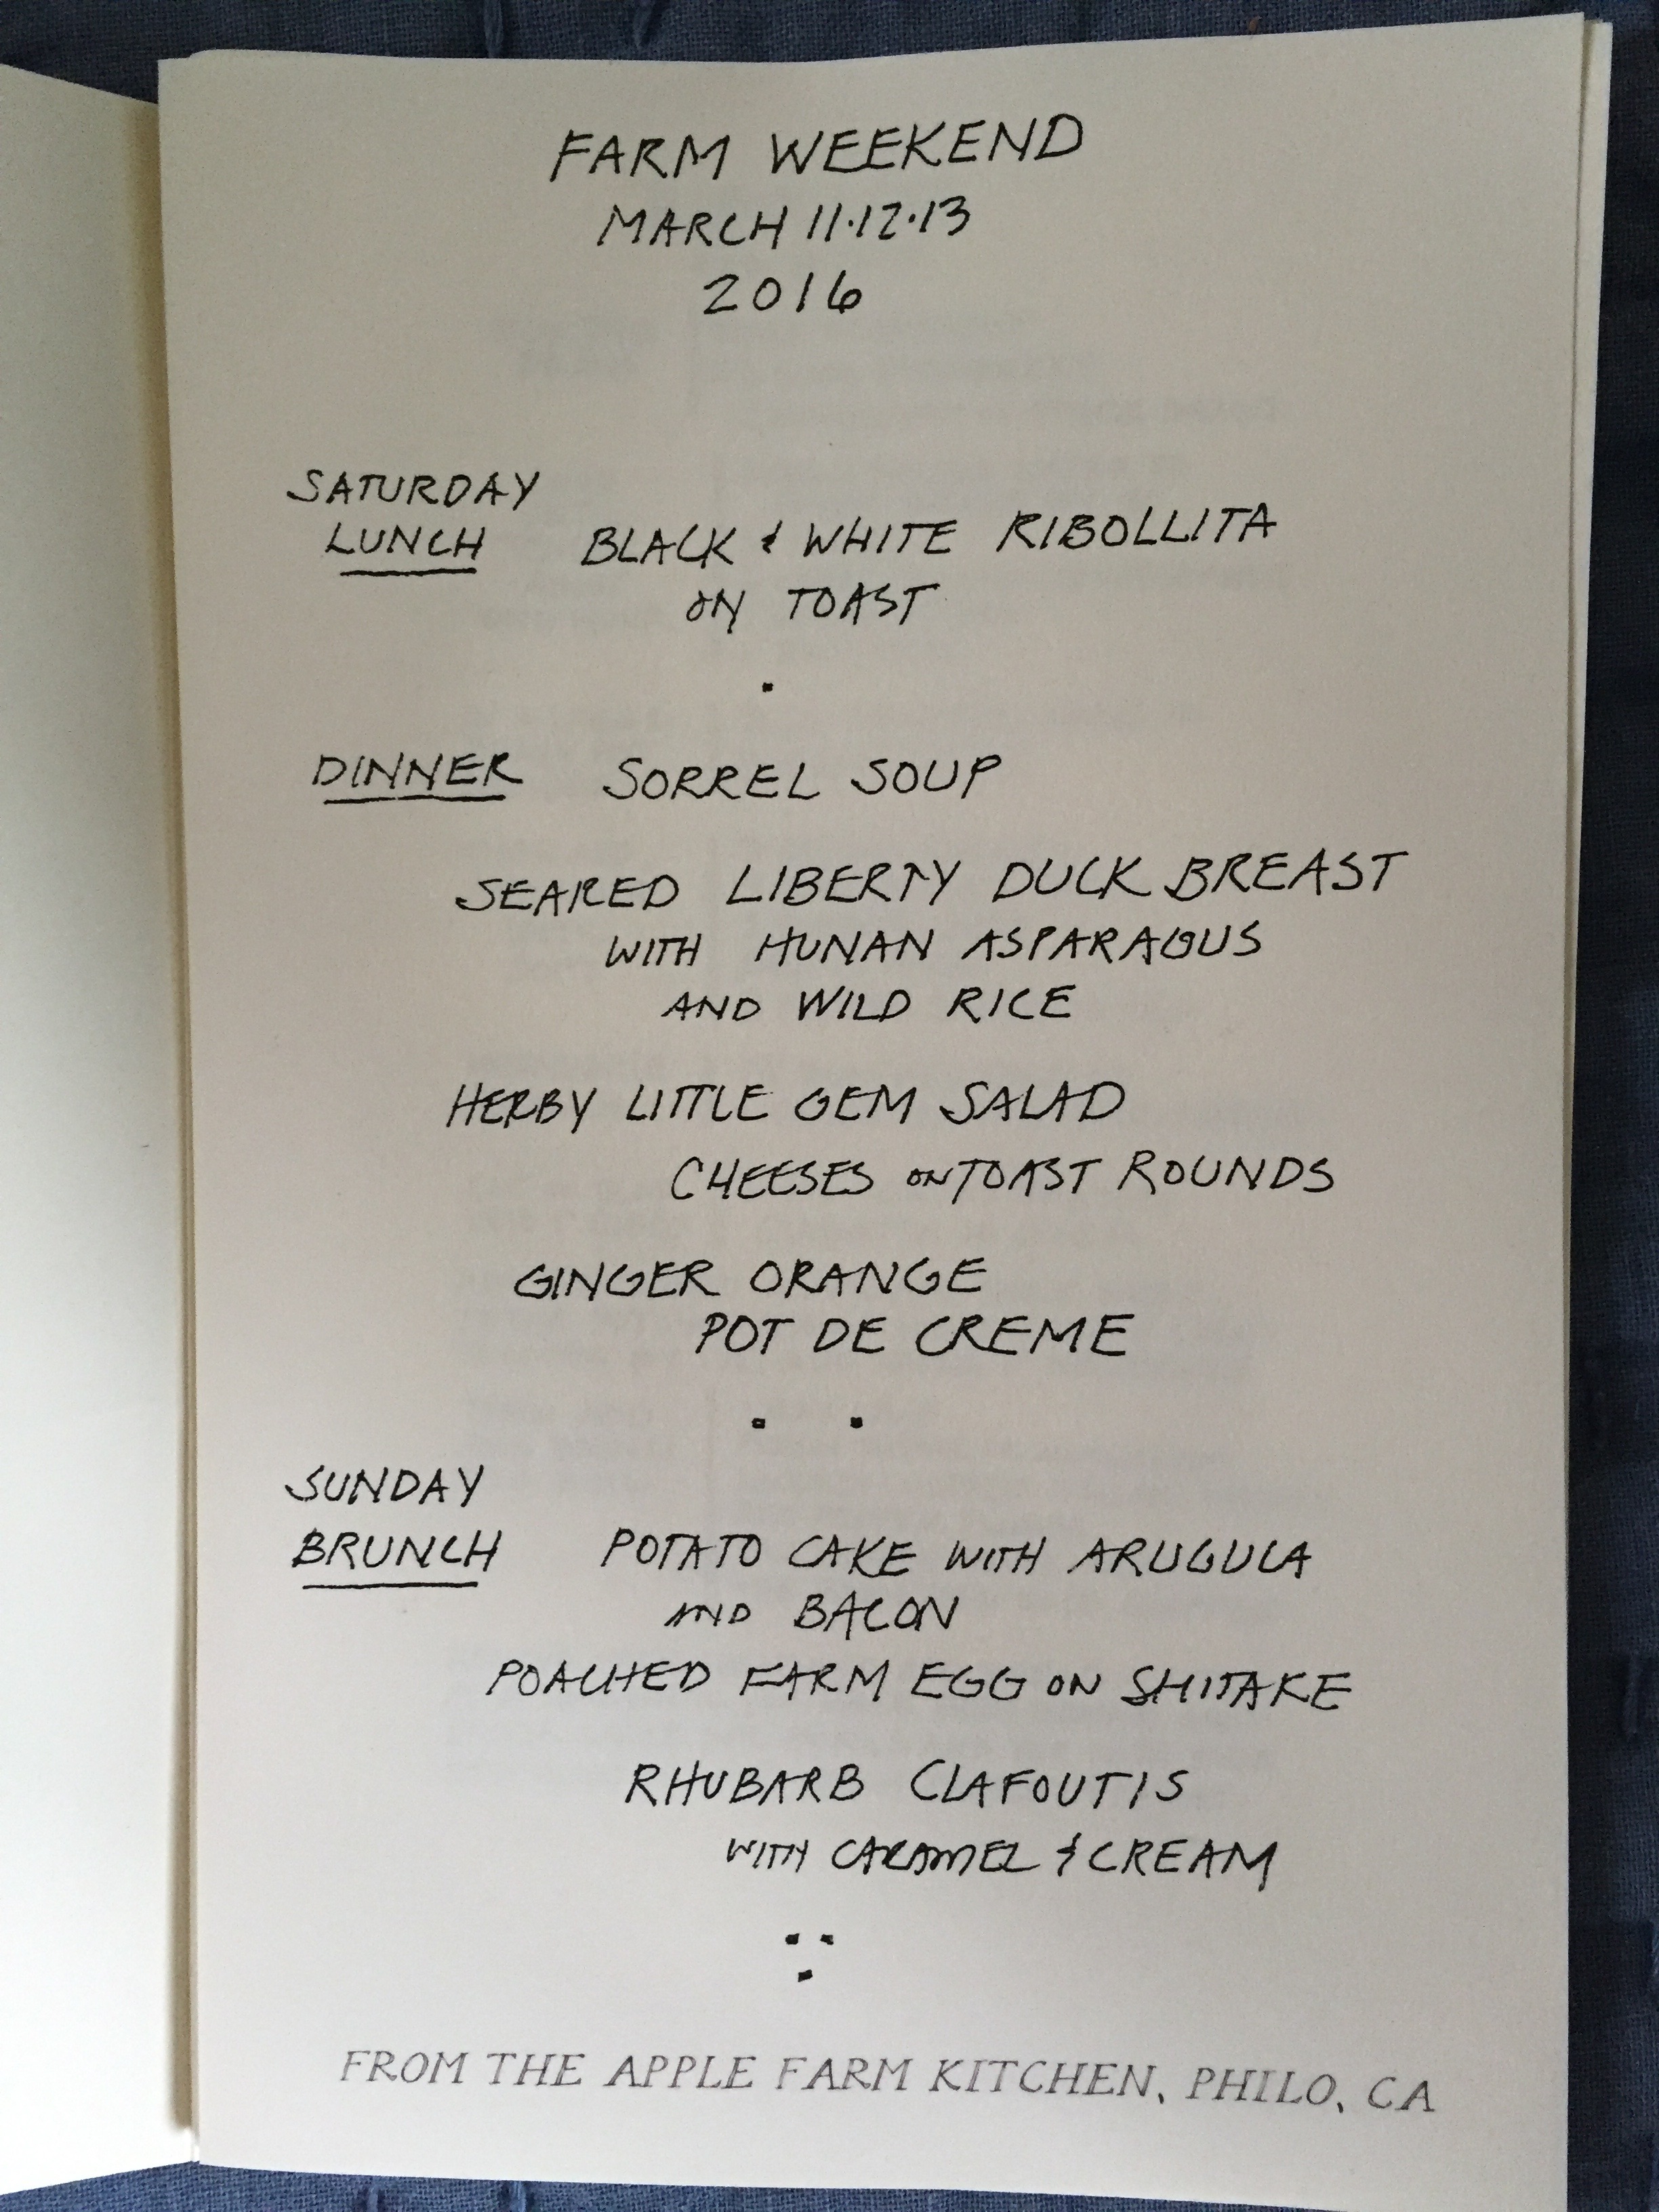 FARM WEEKEND
MARCH 11·12·13
2016
SATURDAY
LUNCH BLACK & WHITE RIBOLLITA
ON TOAST
DINNER SORREL SOUP
SEARED LIBERTY DUCK BREAST
WITH HUNAN ASPARAGUS
AND WILD RICE
HERBY LITTLE GEM SALAD
CHEESES ON TOAST ROUNDS
GINGER ORANGE
POT DE CREME
SUNDAY
BRUNCH POTATO CAKE WITH ARUGULA
AND BACON
POACHED FARM EGG ON SHITAKE
RHUBARB CLAFOUTIS
WITH CARAMEL & CREAM
FROM THE APPLE FARM KITCHEN, PHILO, CA